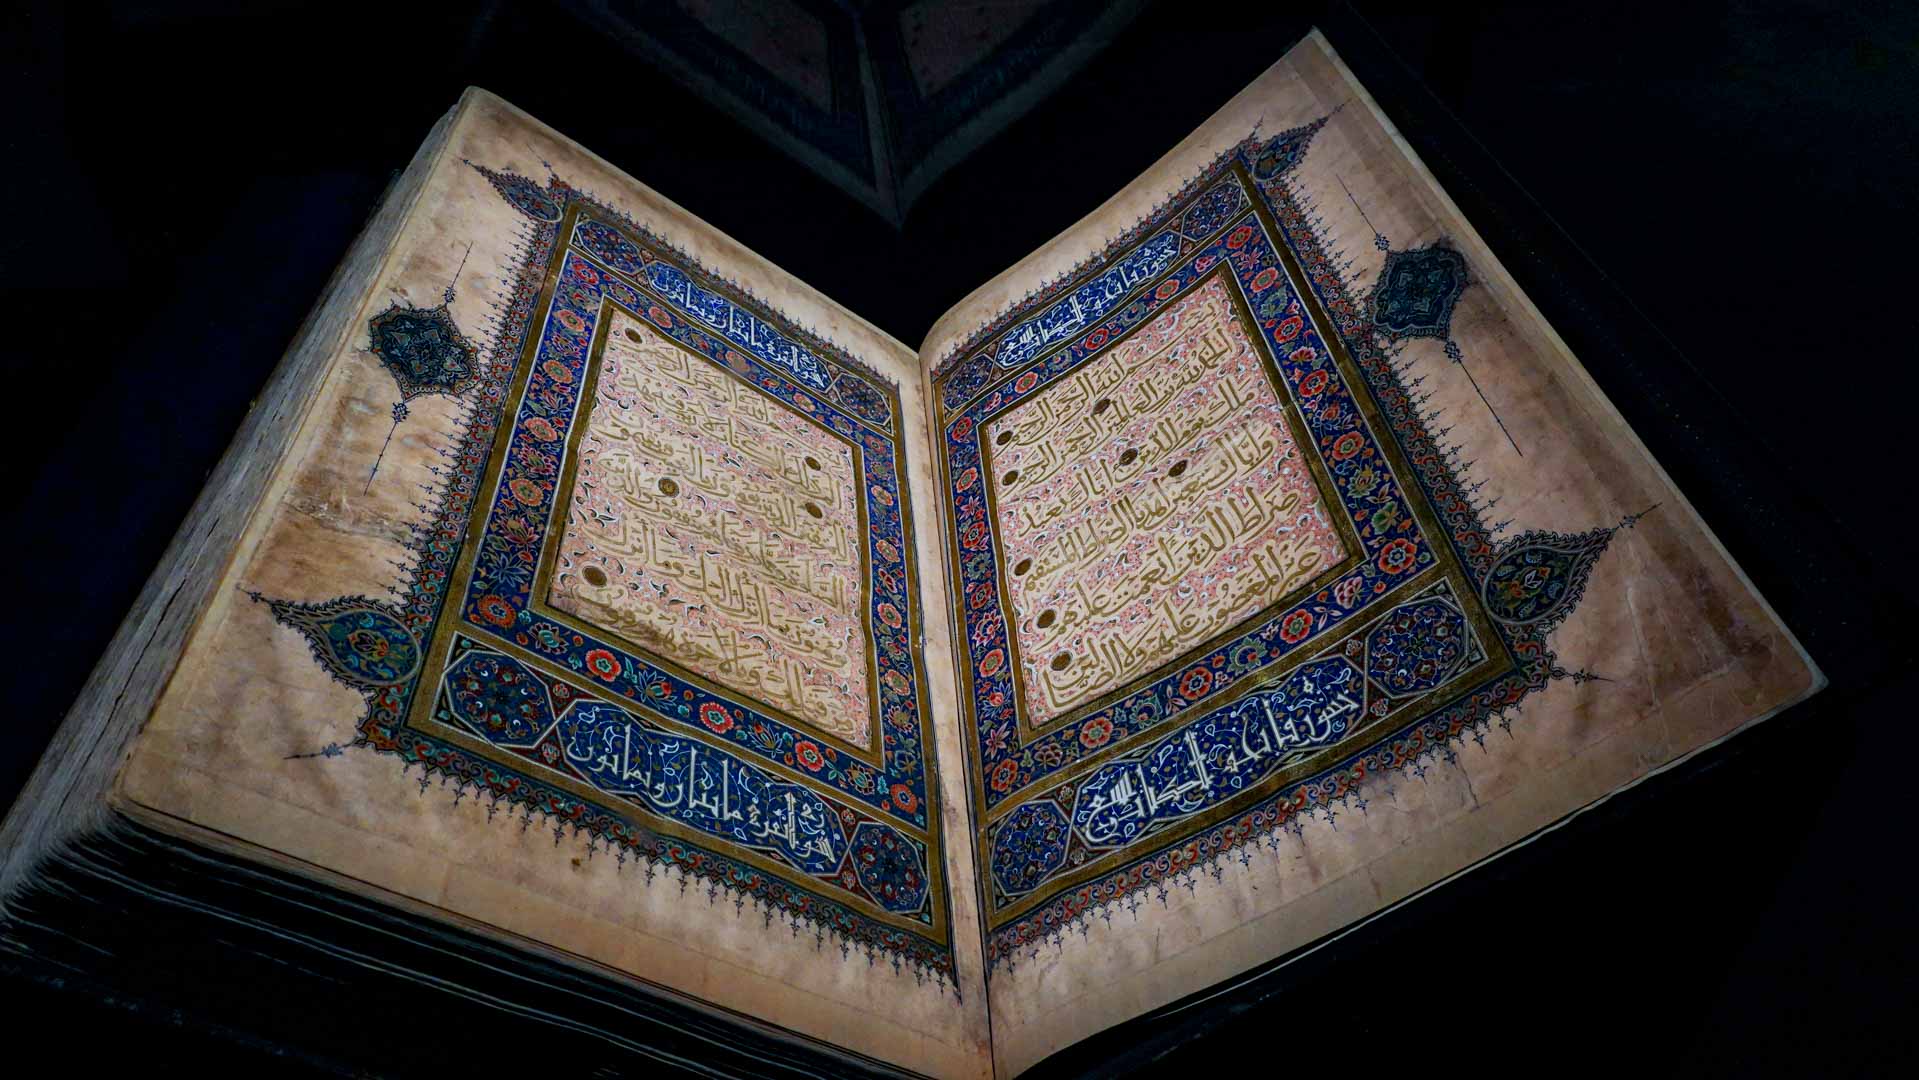 سورة فاتحة الكتاب سبع
بسم الله الرحمن الرحيم
الحمد لله رب العالمين الرحمن الرحيم
ملك يوم الدين اياك نعبد
واياك نستعين اهدنا الصراط المستقيم
صراط الذين انعمت عليهم
غير المغضوب عليهم ولا الضالين
سورة فاتحة الكتاب سبع
سورة البقرة مائتان وثمانون
بسم الله الرحمن الرحيم
الم ذلك الكتاب لا ريب فيه هدى
للمتقين الذين يؤمنون بالغيب ويقيمون
الصلوة ومما رزقناهم ينفقون والذين
يؤمنون بما انزل اليك وما انزل
من قبلك وبالاخرة هم يوقنون
سورة البقرة مائتان وثمانون